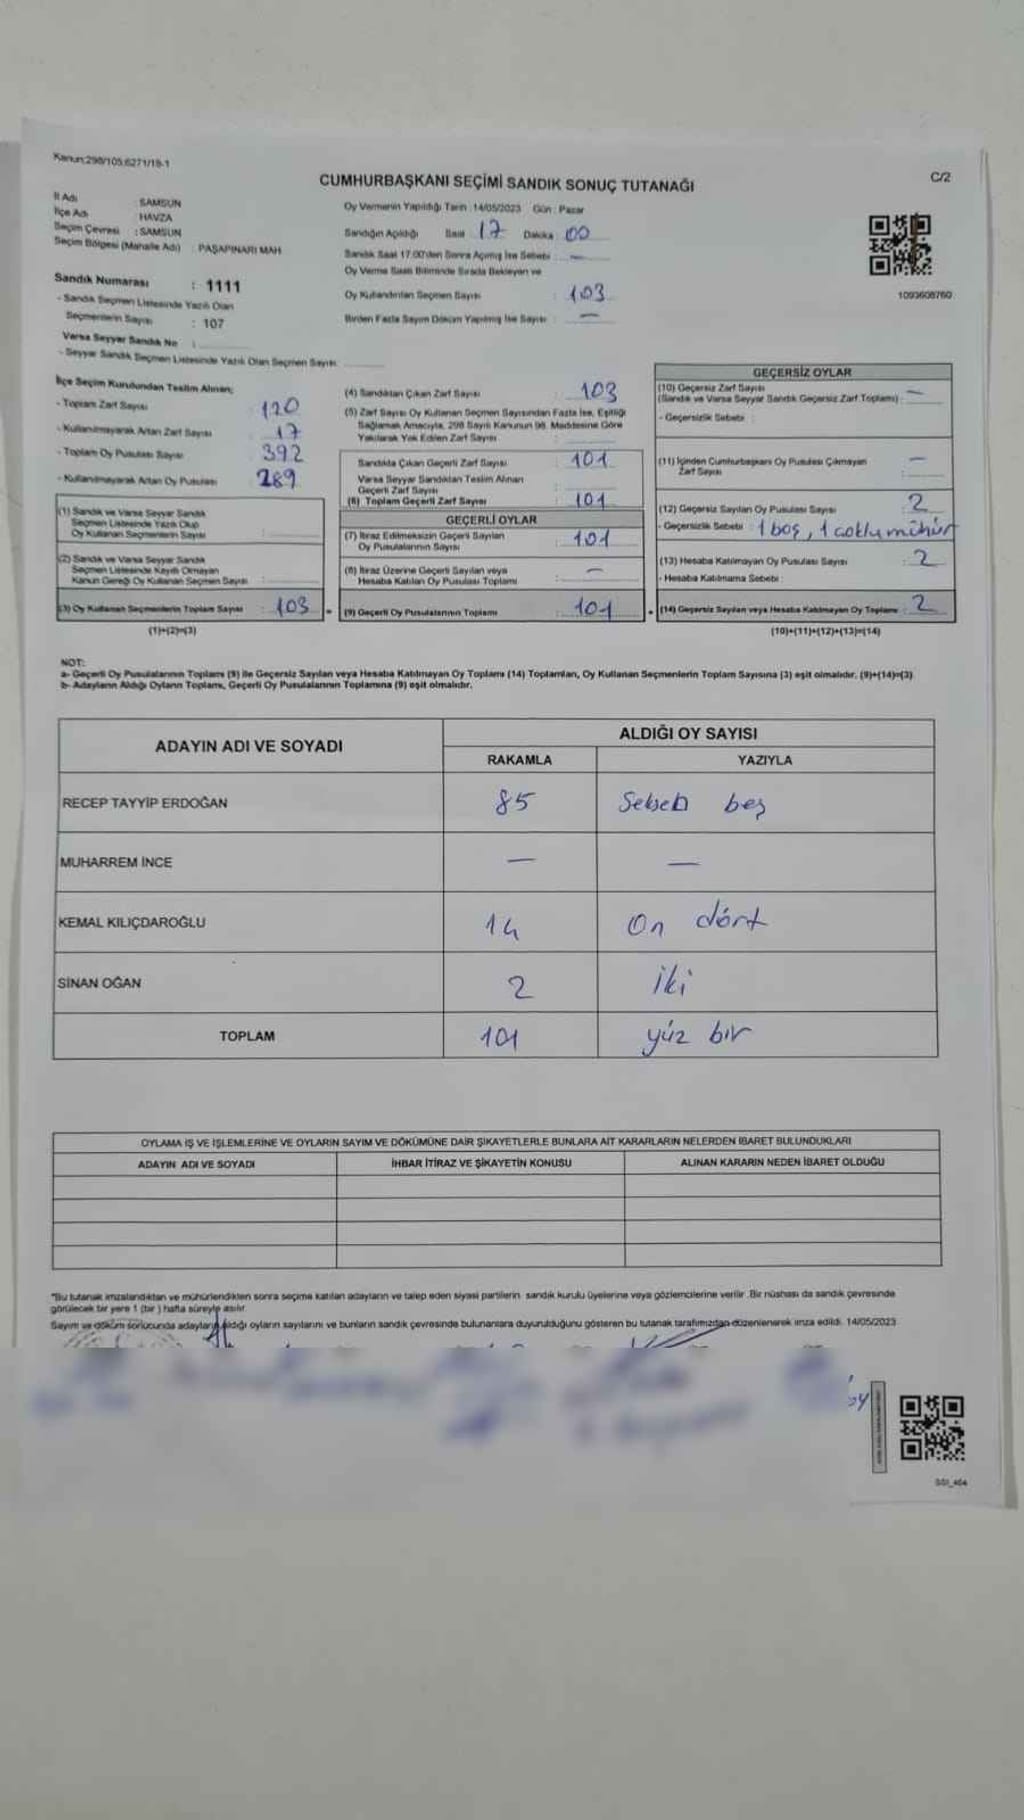 Kanun:298/105;6271/18-1
CUMHURBAŞKANI SEÇİMİ SANDIK SONUÇ TUTANAĞI
C/2
İl Adı : SAMSUN
İlçe Adı : HAVZA
Seçim Çevresi : SAMSUN
Seçim Bölgesi (Mahalle Adı) : PAŞAPINARI MAH
Sandık Numarası : 1111
- Sandık Seçmen Listesinde Yazılı Olan
Seçmenlerin Sayısı : 107
Varsa Seyyar Sandık No :
- Seyyar Sandık Seçmen Listesinde Yazılı Olan Seçmen Sayısı
Oy Vermenin Yapıldığı Tarih : 14/05/2023 Gün : Pazar
Sandığın Açıldığı Saat 17 Dakika 00
Sandık Saat 17.00'den Sonra Açılmış İse Sebebi : —
Oy Verme Saati Bitiminde Sırada Bekleyen ve
Oy Kullandırılan Seçmen Sayısı : 103
Birden Fazla Sayım Döküm Yapılmış İse Sayısı : —
1093608760
İlçe Seçim Kurulundan Teslim Alınan;
- Toplam Zarf Sayısı : 120
- Kullanılmayarak Artan Zarf Sayısı : 17
- Toplam Oy Pusulası Sayısı : 392
- Kullanılmayarak Artan Oy Pusulası : 289
(1) Sandık ve Varsa Seyyar Sandık
Seçmen Listesinde Yazılı Olup
Oy Kullanan Seçmenlerin Sayısı :
(2) Sandık ve Varsa Seyyar Sandık
Seçmen Listesinde Kayıtlı Olmayan
Kanun Gereği Oy Kullanan Seçmen Sayısı :
(3) Oy Kullanan Seçmenlerin Toplam Sayısı : 103
(1)+(2)=(3)
(4) Sandıktan Çıkan Zarf Sayısı : 103
(5) Zarf Sayısı Oy Kullanan Seçmen Sayısından Fazla İse, Eşitliği
Sağlamak Amacıyla, 298 Sayılı Kanunun 98. Maddesine Göre
Yakılarak Yok Edilen Zarf Sayısı :
Sandıkta Çıkan Geçerli Zarf Sayısı : 101
Varsa Seyyar Sandıktan Teslim Alınan
Geçerli Zarf Sayısı :
(6) Toplam Geçerli Zarf Sayısı : 101
GEÇERLİ OYLAR
(7) İtiraz Edilmeksizin Geçerli Sayılan
Oy Pusulalarının Sayısı : 101
(8) İtiraz Üzerine Geçerli Sayılan veya
Hesaba Katılan Oy Pusulası Toplamı : —
= (9) Geçerli Oy Pusulalarının Toplamı : 101 +
GEÇERSİZ OYLAR
(10) Geçersiz Zarf Sayısı
(Sandık ve Varsa Seyyar Sandık Geçersiz Zarf Toplamı) : —
- Geçersizlik Sebebi :
(11) İçinden Cumhurbaşkanı Oy Pusulası Çıkmayan
Zarf Sayısı : —
(12) Geçersiz Sayılan Oy Pusulası Sayısı : 2
- Geçersizlik Sebebi : 1 boş, 1 çoklu mühür
(13) Hesaba Katılmayan Oy Pusulası Sayısı : 2
- Hesaba Katılmama Sebebi :
(14) Geçersiz Sayılan veya Hesaba Katılmayan Oy Toplamı : 2
(10)+(11)+(12)+(13)=(14)
NOT:
a- Geçerli Oy Pusulalarının Toplamı (9) ile Geçersiz Sayılan veya Hesaba Katılmayan Oy Toplamı (14) Toplamları, Oy Kullanan Seçmenlerin Toplam Sayısına (3) eşit olmalıdır. (9)+(14)=(3)
b- Adayların Aldığı Oyların Toplamı, Geçerli Oy Pusulalarının Toplamına (9) eşit olmalıdır.
ADAYIN ADI VE SOYADI
ALDIĞI OY SAYISI
RAKAMLA YAZIYLA
RECEP TAYYİP ERDOĞAN 85 Seksen beş
MUHARREM İNCE — —
KEMAL KILIÇDAROĞLU 14 On dört
SİNAN OĞAN 2 iki
TOPLAM 101 yüz bir
OYLAMA İŞ VE İŞLEMLERİNE VE OYLARIN SAYIM VE DÖKÜMÜNE DAİR ŞİKAYETLERLE BUNLARA AİT KARARLARIN NELERDEN İBARET BULUNDUKLARI
ADAYIN ADI VE SOYADI İHBAR İTİRAZ VE ŞİKAYETİN KONUSU ALINAN KARARIN NEDEN İBARET OLDUĞU
"Bu tutanak imzalandıktan ve mühürlendikten sonra seçime katılan adayların ve talep eden siyasi partilerin sandık kurulu üyelerine veya gözlemcilerine verilir. Bir nüshası da sandık çevresinde
görülecek bir yere 1 (bir) hafta süreyle asılır.
Sayım ve döküm sonucunda adayların aldığı oyların sayılarını ve bunların sandık çevresinde bulunanlara duyurulduğunu gösteren bu tutanak tarafımızdan düzenlenerek imza edildi. 14/05/2023
SSI_464